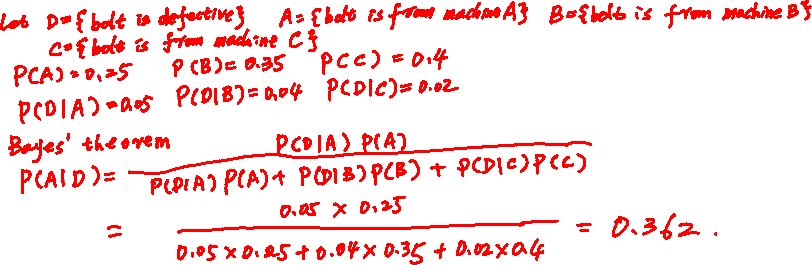 Let D={bolt is defective} A={bolt is from machine A} B={bolt is from machine B}
C={bolt is from machine C}
P(A)=0.25 P(B)=0.35 P(C)=0.4
P(D|A)=0.05 P(D|B)=0.04 P(D|C)=0.02
Bayes' theorem
P(A|D)= P(D|A) P(A) / P(D|A) P(A)+ P(D|B) P(B) + P(D|C) P(C)
= 0.05 × 0.25 / 0.05×0.25+0.04×0.35+0.02×0.4 = 0.362.